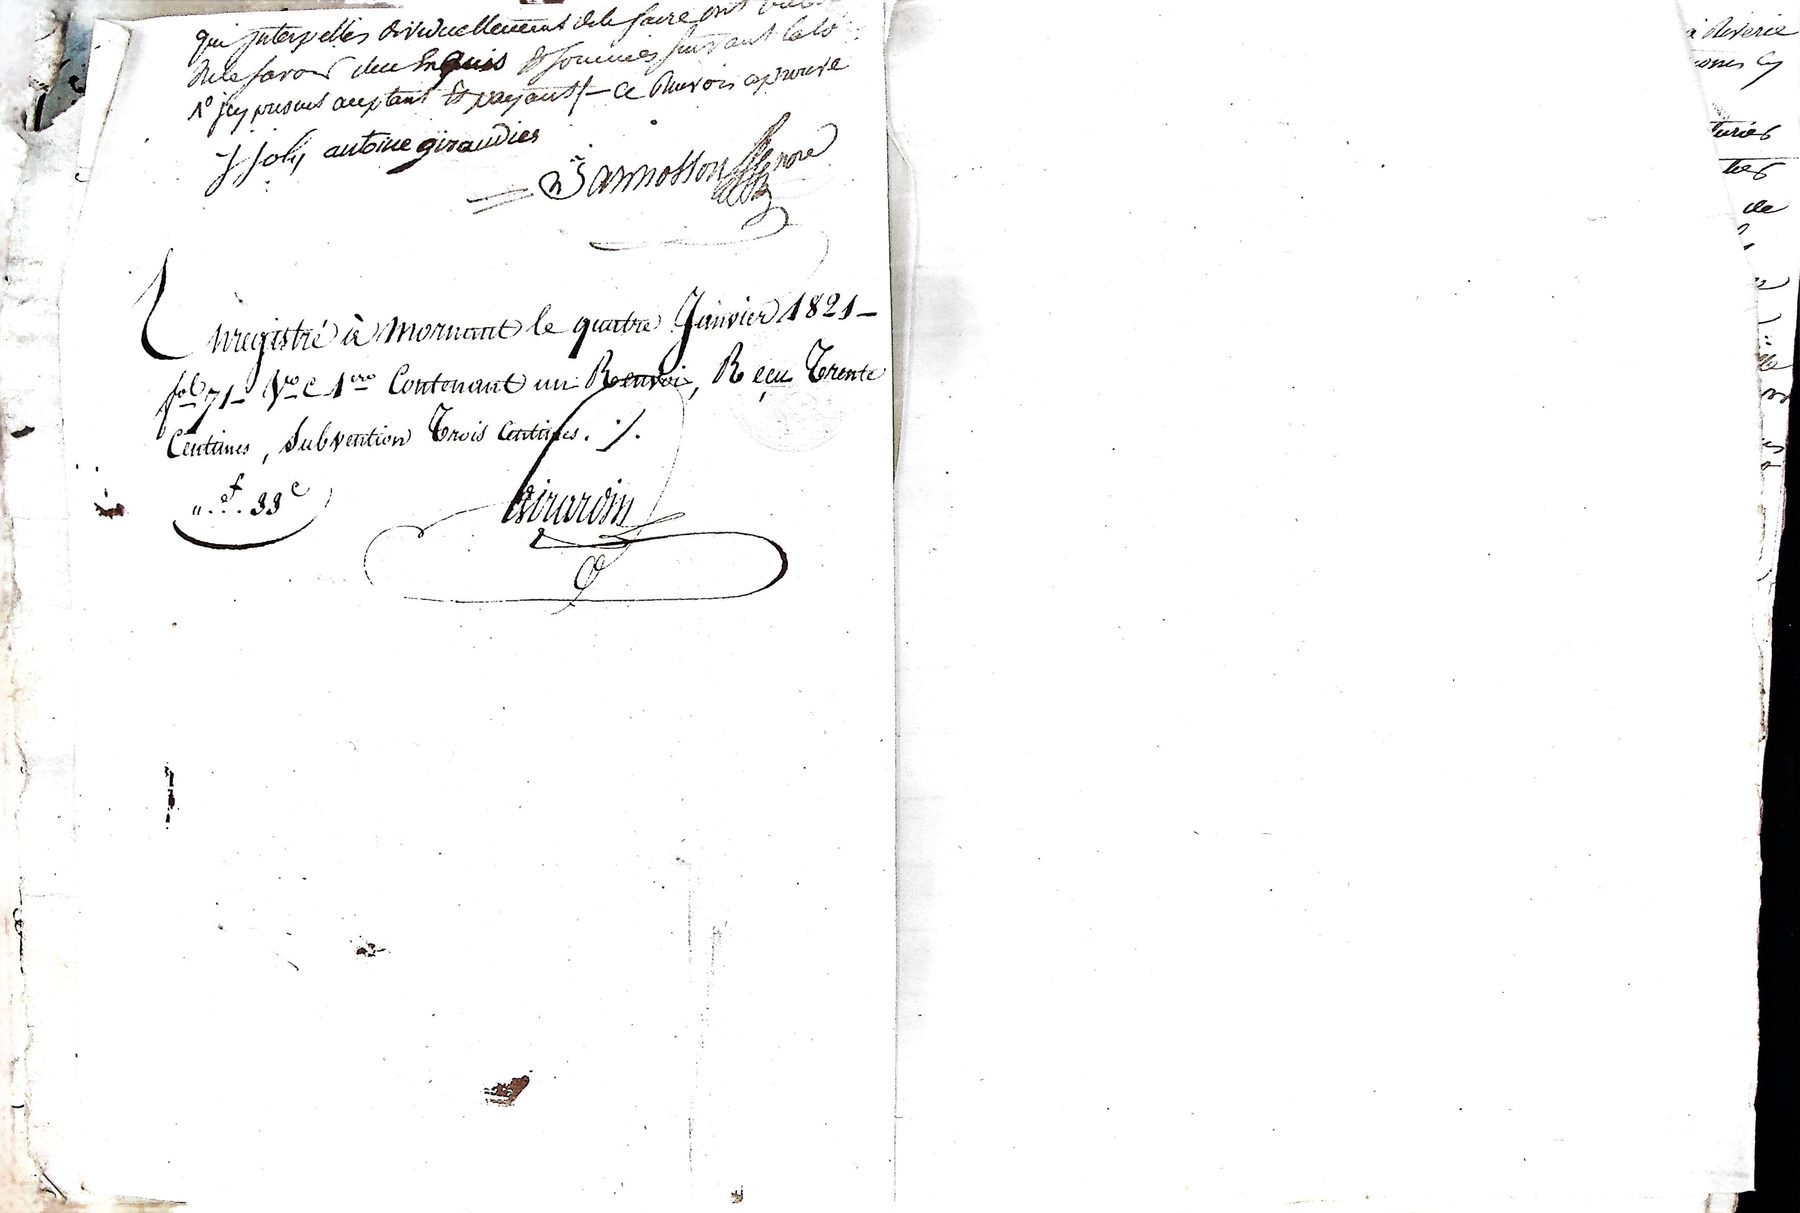 qui interpellés dividuellement de le faire ont
de le savoir de ce Enquis & sommés suivant la loi
1° icy present acceptant & payant /- ce Renvoi aprouvé
J Joly antoine giraudier
Jannosson
Enregistré à Mornant le quatre Janvier 1821 –
fol 71 – Vo C 1ere Contenant un Renvoi, Reçu Trente
Centimes, Subvention Trois Centimes ./.
„ . f . 33 c
Girardin
à Riverie
de